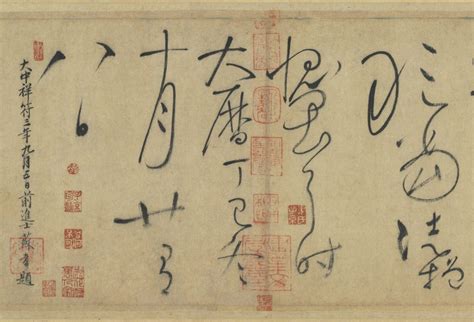 敢當徒增
愧畏耳時
大曆丁巳冬
十月廿有
八日
大中祥符三年九月五日前進士蘇耆題